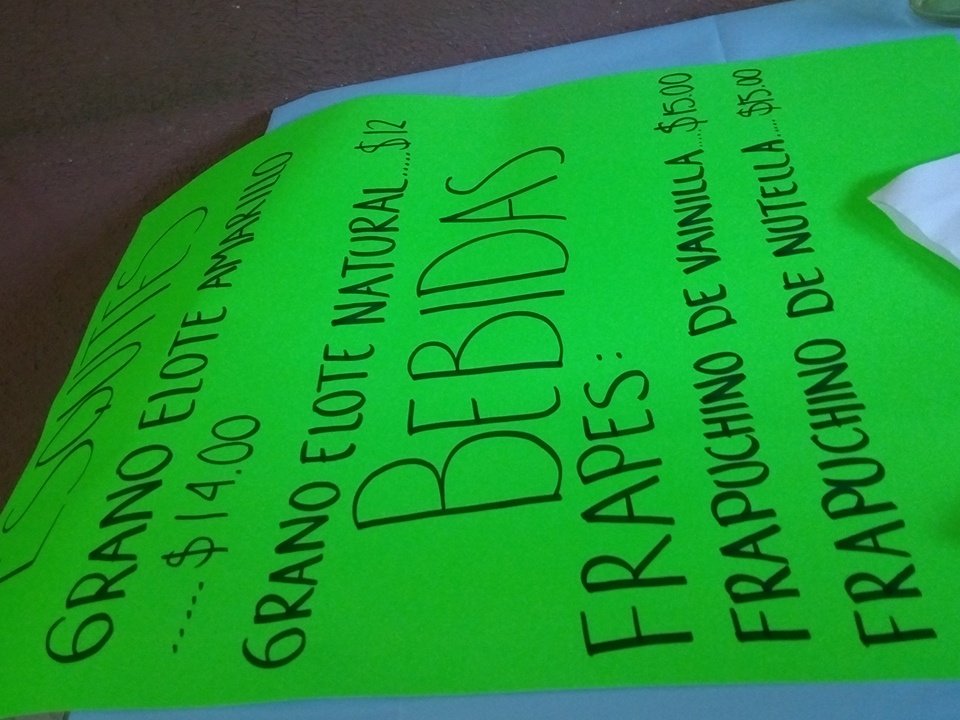 ESQUITES
GRANO ELOTE AMARILLO
.....$14.00
GRANO ELOTE NATURAL.....$12
BEBIDAS
FRAPES:
FRAPUCHINO DE VAINILLA....$15.00
FRAPUCHINO DE NUTELLA....$15.00